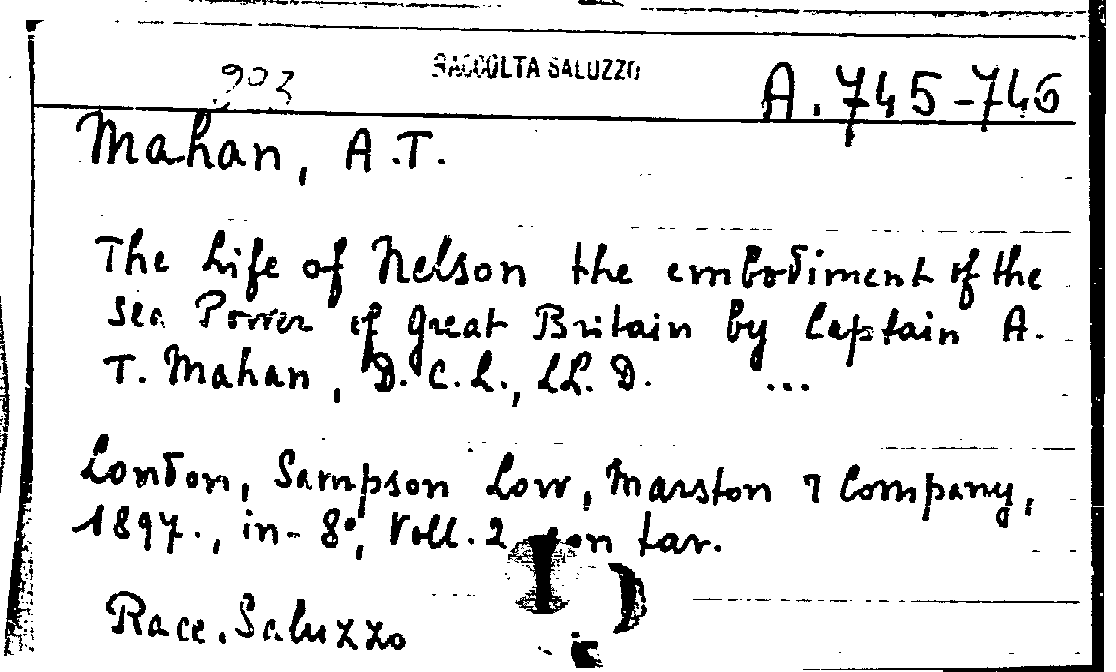 RACCOLTA SALUZZO
903 A. 745-746
Mahan, A.T.
The Life of Nelson the embodiment of the
sea Power of Great Britain by Captain A.
T. Mahan, D.C.L., LL.D. ...
London, Sampson Low, Marston & Company,
1897., in-8°, Voll. 2 con tav.
Racc. Saluzzo